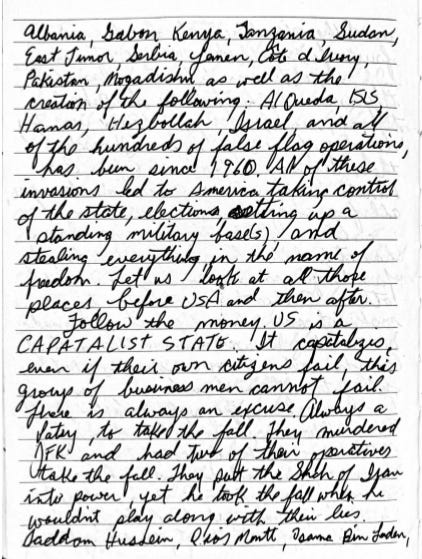 Albania, Gabon Kenya, Tanzania, Sudan,
East Timor, Serbia, Yemen, Côte d Ivory,
Pakistan, Mogadishu as well as the
creation of the following: Al Queda, ISIS,
Hamas, Hezbollah, Israel and all
of the hundreds of false flag operations,
has been since 1960. All of these
invasions led to America taking control
of the state, elections setting up a
standing military base(s) and
stealing everything in the name of
freedom. Let us look at all those
places before USA and then after.
Follow the money. US is a
CAPATALIST STATE. It capitalizes,
even if their own citizens fail, this
group of business men cannot fail.
There is always an excuse. Always a
patsy, to take the fall. They murdered
JFK and had two of their operatives
take the fall. They put the Shah of Iran
into power, yet he took the fall when he
wouldnt play along with their lies.
Saddam Hussein, Rios Montt, Osama Bin Laden,